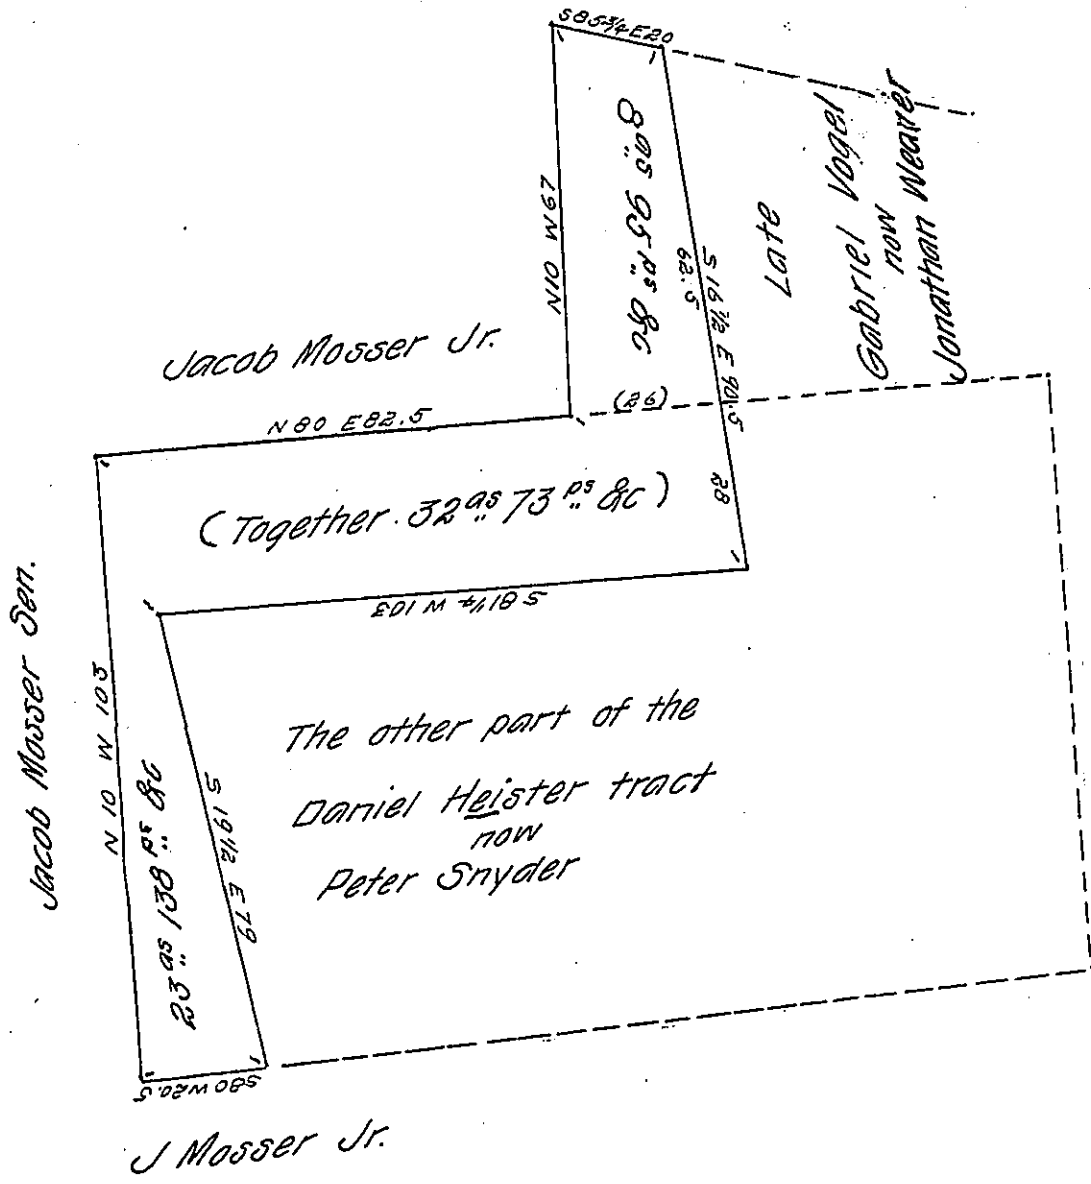 S 85 3/4 E 20
8 as 95 ps &c
N 10 W 67
Late
Gabriel Vogel
now
Jonathan Weaver
S 16 1/2 E 90.5
62.5
28
Jacob Mosser Jr.
N 80 E 82.5
(26)
(Together 32 as 73 ps &c)
S 81 1/4 W 103
Jacob Mosser Sen.
N 10 W 103
23 as 138 ps &c
S 19 1/2 E 79
The other part of the
Daniel Heister tract
now
Peter Snyder
S 80 W 20.5
J Mosser Jr.